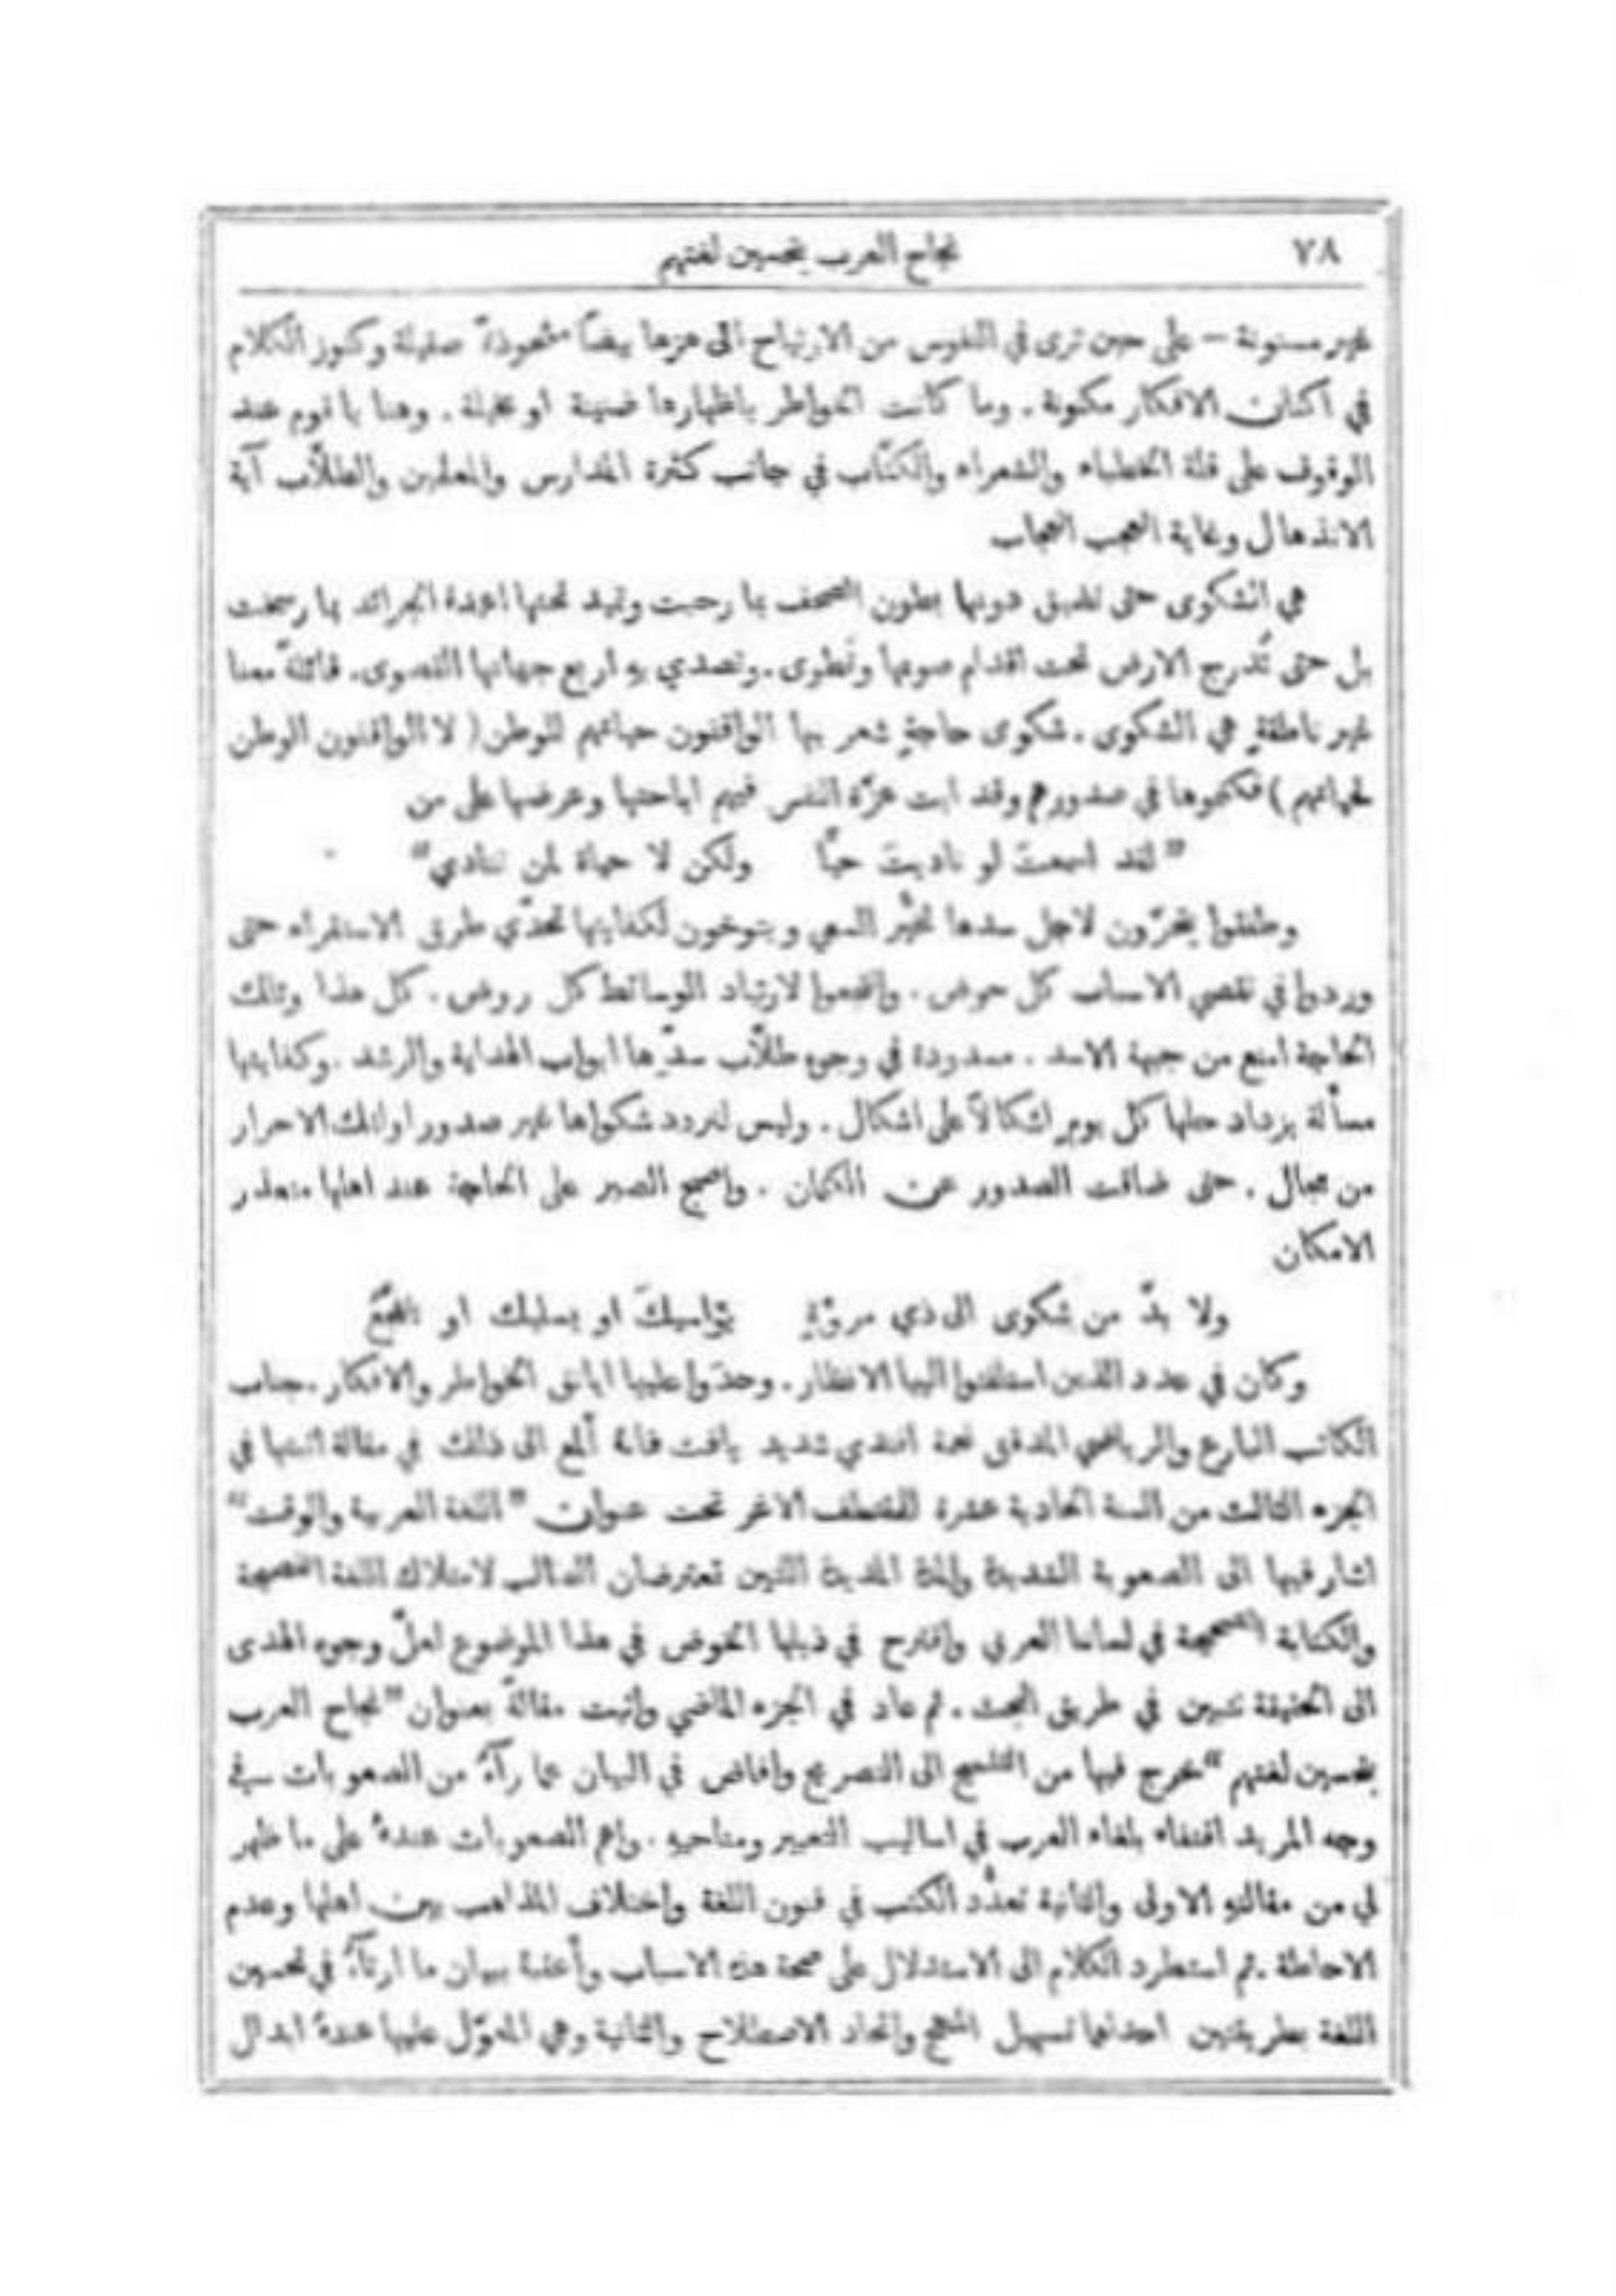 ٧٨
نجاح العرب بتحسين لغتهم
غير مسنونة – على حين ترى في النفوس من الارتياح الى هزها بيضًا مشحوذةً صقيلة وكنوز الكلام
في اكنان الافكار مكنونة . وما كانت الخواطر باظهارها ضنينة او بخيلة . وهنا يا قوم عند
الوقوف على قلة الخطباء والشعراء والكتّاب في جانب كثرة المدارس والمعلمين والطلّاب آية
الانذهال وغاية العجب العجاب
هي الشكوى حتى تضيق دونها بطون الصحف بما رحبت وتميد تحتها اعمدة الجرائد بما رسخت
بل حتى تُدرج الارض تحت اقدام صوتها وتُطوى . وتصدي بهِ اربع جهاتها القصوى . قائلةً معنا
غير ناطقةٍ هي الشكوى . شكوى حاجةٍ شعر بها الواقفون حياتهم للوطن ( لا الواقفون الوطن
لحياتهم ) فكتموها في صدورهم وقد ابت عزّة النفس فيهم اباحتها وعرضها على من
" لقد اسمعتَ لو ناديتَ حيًّا ولكن لا حياة لمن تنادي "
وطفقوا يتحرّون لاجل سدها تخيُّر السعي ويتوخون لكفايتها تحدّي طرق الاستقراء حتى
وردوا في تقصي الاسباب كل حوض . وانتجعوا لارتياد الوسائط كل روض . كل هذا وتلك
الحاجة امنع من جبهة الاسد . مسدودة في وجوه طلّاب سدّها ابواب الهداية والرشد . وكفايتها
مسألة يزداد حلها كل يومٍ اشكالًا على اشكال . وليس لتردد شكواها غير صدور اولئك الاحرار
من مجال . حتى ضاقت الصدور عن الكتمان . واصبح الصبر على الحاجة عند اهلها متعذر
الامكان
ولا بدّ من شكوى الى ذي مروّةٍ يؤاسيكَ او يسليك او يتفجّعُ
وكان في عدد الذين استلفتوا اليها الانظار . وحدَوا عليها ايانق الخواطر والافكار . جناب
الكاتب البارع والرياضي المدقق نعمة افندي شديد يافت فانهُ ألمع الى ذلك في مقالة اثبتها في
الجزء الثالث من السنة الحادية عشرة للمقتطف الاغر تحت عنوان " اللغة العربية والوقت "
اشار فيها الى الصعوبة الشديدة والمدة المديدة اللتين تعترضان الطالب لامتلاك اللغة الفصيحة
والكتابة الصحيحة في لساننا العربي واقترح في ذيلها الخوض في هذا الموضوع لعلّ وجوه الهدى
الى الحقيقة تتبين في طريق البحث . ثم عاد في الجزء الماضي واثبت مقالةً بعنوان " نجاح العرب
بتحسين لغتهم " خرج فيها من التلميح الى التصريح وافاض في البيان عما رآهُ من الصعوبات في
وجه المريد اقتفاء بلغاء العرب في اساليب التعبير ومناحيهِ . واهم الصعوبات عندهُ على ما ظهر
لي من مقالتهِ الاولى والثانية تعدُّد الكتب في فنون اللغة واختلاف المذاهب بين اهلها وعدم
الاحاطة . ثم استطرد الكلام الى الاستدلال على صحة هذه الاسباب وأعقبهُ ببيان ما ارتآهُ في تحسين
اللغة بطريقتين احداهما تسهيل المنهج واتحاد الاصطلاح والثانية وهي المعوّل عليها عندهُ ابدال